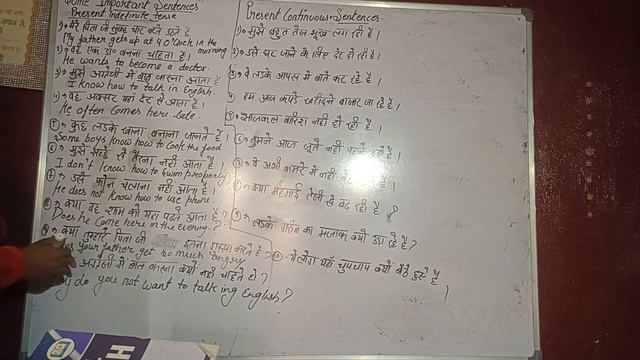 Some Important Sentences
Present Indefinite tense
1) मेरे पिता जी सुबह चार बजे उठते हैं
My father gets up at 4 O'clock in the morning
2) वह एक डॉ० बनना चाहता है।
He wants to become a doctor.
3) मुझे अंग्रेजी में बात करना आता है
I know how to talk in English.
4) वह अक्सर यहाँ देर से आता है।
He often comes here late.
5) कुछ लड़के खाना बनाना जानते हैं।
Some boys know how to cook the food.
6) मुझे से तैरना नहीं आता है।
I don't know how to swim properly.
7) उसे फोन चलाना नहीं आता है।
He does not know how to use phone.
8) क्या वह शाम को यहाँ आता है?
Does he come here in the evening?
9) क्या तुम्हारे पिता जी इतना गुस्सा करते हैं?
your father get so much angry
अंग्रेजी में बात करना क्यों नहीं चाहते हो?
do you not want to talking English?
Present Continuous Sentences
1) मुझे बहुत तेज भूख लग रही है।
2) उसे घर जाने के लिए देर हो रही है।
3) वे लड़के आपस में बातें कर रहे हैं।
4) हम आज कपड़े खरीदने बाजार जा रहे हैं।
5) आजकल बारिश नहीं हो रही है।
6) तुमने आज जूते नहीं रहे हैं।
7) वे अभी कमरे में नहीं हैं।
क्या महंगाई तेजी से बढ़ रही है?
9) लड़के का मजाक क्यों उड़ा रहे हैं?
10) ये लोग यहाँ चुपचाप क्यों बैठे हुए हैं।